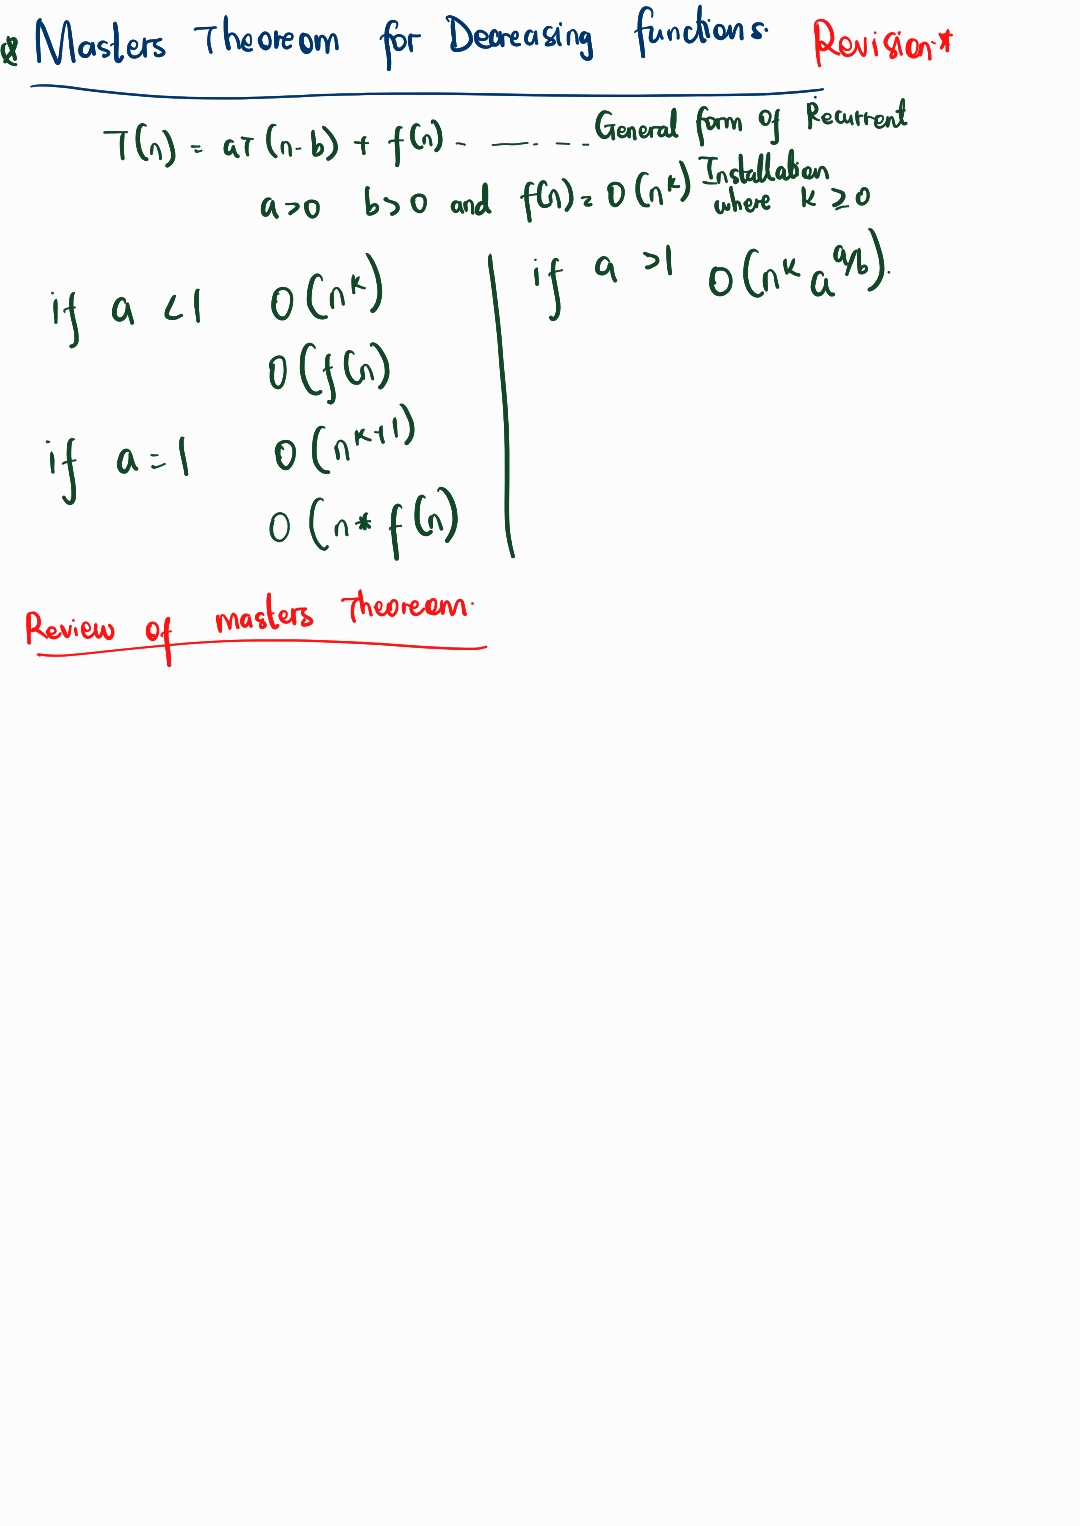 Masters Theoreom for Decreasing functions. Revision*
T(n) = aT (n-b) + f(n) - ---- General form of Recurrent Installation
a>0 b>0 and f(n) = O(n^k) where k ≥ 0
if a <1 O(n^k)
O(f(n)
if a=1 O(n^k+1)
O(n* f(n)
if a >1 O(n^k a^a/b).
Review of masters Theoreom.